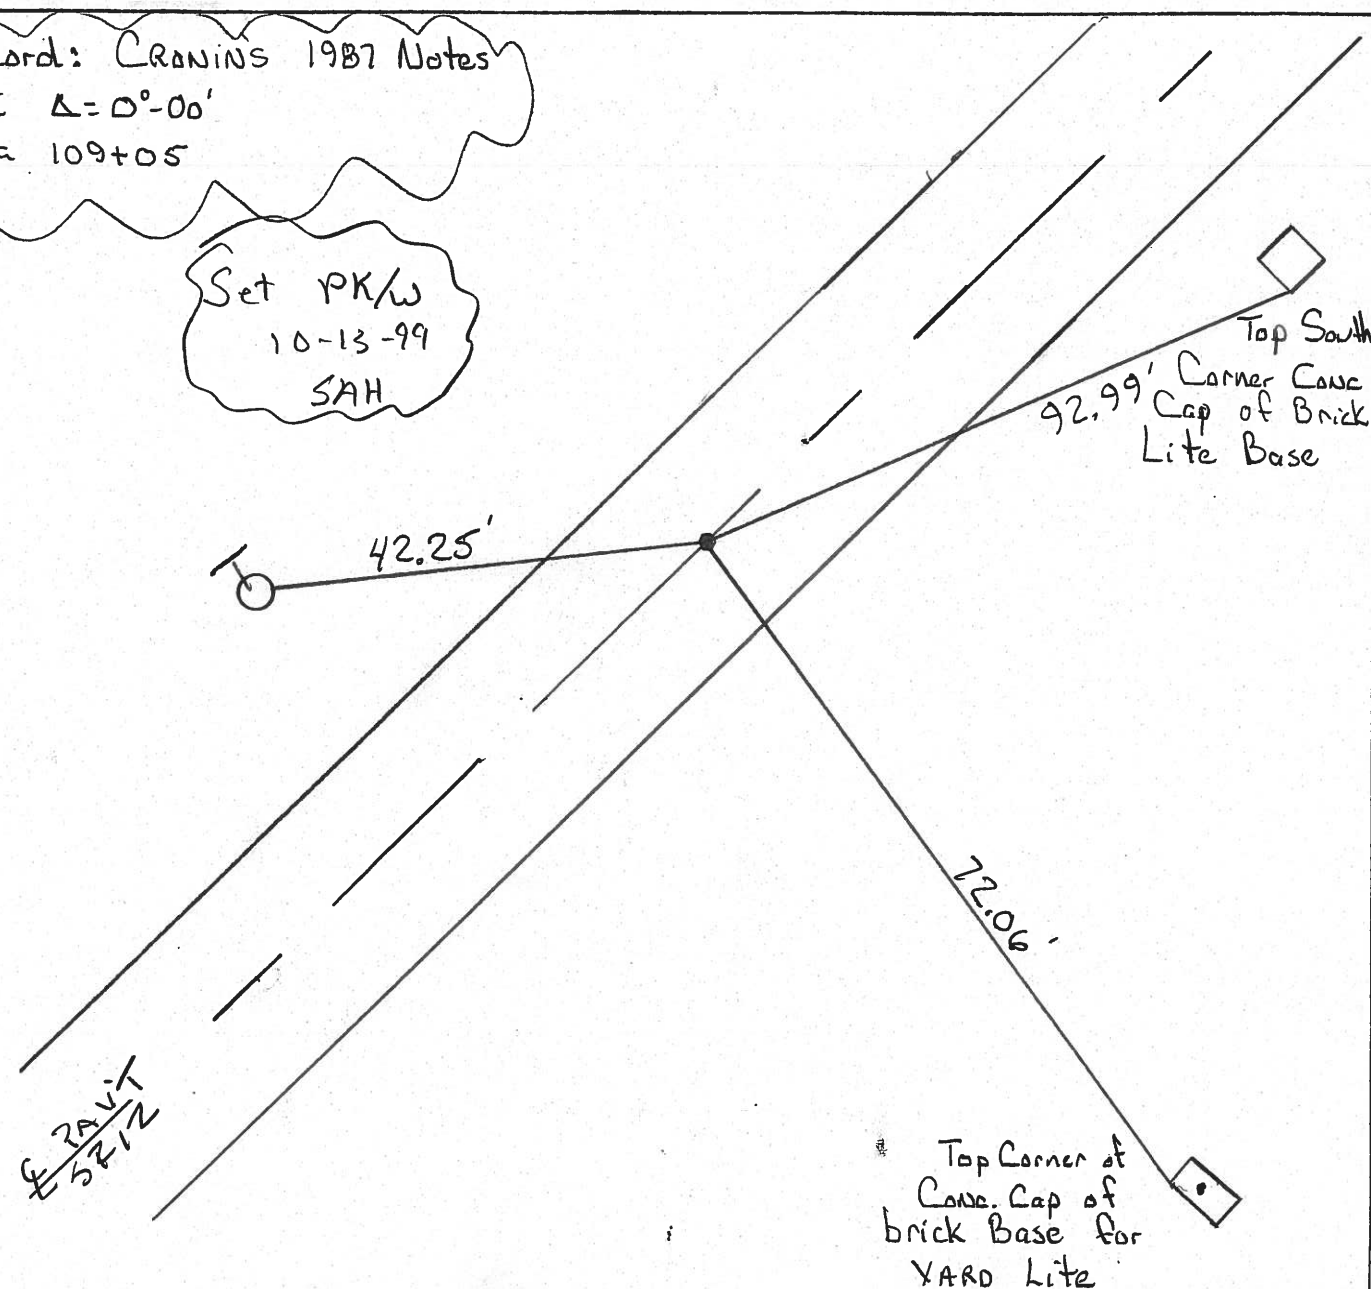 ord: CRONINS 1987 Notes
Δ= 0°-00'
109+05
Set PK/W
10-13-99
SAH
Top South
Corner Conc
Cap of Brick
Lite Base
92.99'
42.25'
72.06'
℄ PAV'T
SR12
Top Corner of
Conc. Cap of
brick Base for
YARD Lite